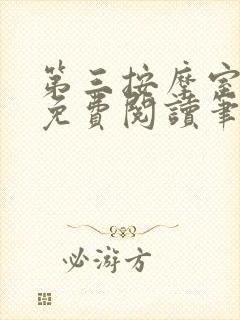 第三按摩室
免費閱讀筆
必游方